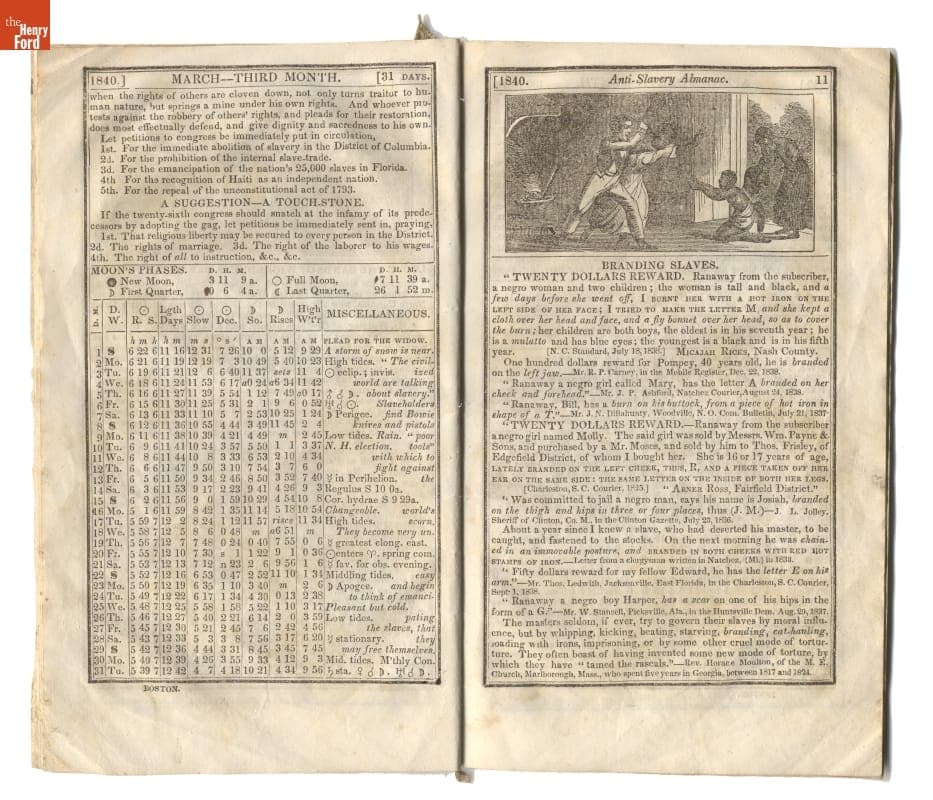 the
Henry
Ford
1840.] MARCH—THIRD MONTH. [31 DAYS.
when the rights of others are cloven down, not only turns traitor to hu-
man nature, but springs a mine under his own rights. And whoever pro-
tests against the robbery of others' rights, and pleads for their restoration,
does most effectually defend, and give dignity and sacredness to his own.
Let petitions to congress be immediately put in circulation,
1st. For the immediate abolition of slavery in the District of Columbia.
2d. For the prohibition of the internal slave-trade.
3d. For the emancipation of the nation's 25,000 slaves in Florida.
4th For the recognition of Haiti as an independent nation.
5th. For the repeal of the unconstitutional act of 1793.
A SUGGESTION—A TOUCH-STONE.
If the twenty-sixth congress should snatch at the infamy of its prede-
cessors by adopting the gag, let petitions be immediately sent in, praying,
1st. That religious liberty may be secured to every person in the District.
2d. The rights of marriage. 3d. The right of the laborer to his wages.
4th. The right of all to instruction, &c., &c.
MOON'S PHASES. D. H. M. D. H. M.
New Moon, 3 11 9 a. Full Moon, 17 11 39 a.
First Quarter, 10 6 4 a. Last Quarter, 26 1 52 m.
D. W. R. S. Lgth Days Slow Dec. So. Rises High W't'r MISCELLANEOUS.
h m h m h m m s ° s ' A M A M A M PLEAD FOR THE WIDOW.
1 S 6 22 6 11 16 12 31 7 26 10 0 5 12 9 29 A storm of snow is near.
2 Mo. 6 21 6 11 19 12 19 7 3 10 49 5 40 10 23 High tides. "The civil-
3 Tu. 6 19 6 11 21 12 6 6 40 11 37 sets 11 4 eclip.; invis. ized
4 We. 6 18 6 11 24 11 53 6 17 a0 24 a6 34 11 42 world are talking
5 Th. 6 16 6 11 27 11 39 5 54 1 12 7 49 a0 17 about slavery."
6 Fr. 6 15 6 11 30 11 25 5 31 2 1 9 6 0 52 Slaveholders
7 Sa. 6 13 6 11 33 11 10 5 7 2 53 10 25 1 24 Perigee. find Bowie
8 S 6 12 6 11 36 10 55 4 44 3 49 11 45 2 4 knives and pistols
9 Mo. 6 11 6 11 38 10 39 4 21 4 49 m 2 45 Low tides. Rain. "poor
10 Tu. 6 9 6 11 41 10 24 3 57 5 50 1 1 3 37 N. H. election. tools"
11 We. 6 8 6 11 44 10 8 3 33 6 53 2 10 4 34 with which to
12 Th. 6 6 6 11 47 9 50 3 10 7 54 3 7 6 0 fight against
13 Fr. 6 5 6 11 50 9 34 2 46 8 50 3 52 7 40 in Perihelion. the
14 Sa. 6 3 6 11 53 9 17 2 23 9 41 4 26 9 3 Regulus S 10 0a.
15 S 6 2 6 11 56 9 0 1 59 10 29 4 54 10 8 Cor. hydrae S 9 29a.
16 Mo. 6 1 6 11 59 8 42 1 35 11 14 5 18 10 54 Changeable. world's
17 Tu. 5 59 7 12 2 8 24 1 12 11 57 rises 11 34 High tides. scorn.
18 We. 5 58 7 12 5 8 6 0 48 m a6 51 m They become very un.
19 Th. 5 56 7 12 7 7 48 0 24 0 40 7 55 0 6 greatest elong. east.
20 Fr. 5 55 7 12 10 7 30 s 1 1 22 9 1 0 36 enters ♈. spring com.
21 Sa. 5 53 7 12 13 7 12 n 23 2 6 9 56 1 6 fav. for obs. evening.
22 S 5 52 7 12 16 6 53 0 47 2 52 11 10 1 34 Middling tides, easy
23 Mo. 5 50 7 12 19 6 35 1 10 3 40 m 2 6 Apogee. and begin
24 Tu. 5 49 7 12 22 6 17 1 34 4 30 0 13 2 38 to think of emanci-
25 We. 5 48 7 12 25 5 58 1 58 5 22 1 10 3 17 Pleasant but cold.
26 Th. 5 46 7 12 27 5 40 2 21 6 14 2 0 3 59 Low tides. pating
27 Fr. 5 45 7 12 30 5 21 2 45 7 6 2 42 4 56 the slaves, that
28 Sa. 5 43 7 12 33 5 3 3 8 7 56 3 17 6 20 stationary. they
29 S 5 42 7 12 36 4 44 3 31 8 45 3 45 7 45 may free themselves.
30 Mo. 5 40 7 12 39 4 26 3 55 9 33 4 12 9 3 Mid. tides. M'thly Con.
31 Tu. 5 39 7 12 42 4 7 4 18 10 21 4 34 9 56 sta.
BOSTON.
[1840. Anti-Slavery Almanac. 11
BRANDING SLAVES.
"TWENTY DOLLARS REWARD. Ranaway from the subscriber,
a negro woman and two children; the woman is tall and black, and a
few days before she went off, I BURNT HER WITH A HOT IRON ON THE
LEFT SIDE OF HER FACE; I TRIED TO MAKE THE LETTER M, and she kept a
cloth over her head and face, and a fly bonnet over her head, so as to cover
the burn; her children are both boys, the oldest is in his seventh year; he
is a mulatto and has blue eyes; the youngest is a black and is in his fifth
year. [N. C. Standard, July 18, 1838.] MICAJAH RICKS, Nash County.
One hundred dollars reward for Pompey, 40 years old, he is branded
on the left jaw.—Mr. R. P. Carney, in the Mobile Register, Dec. 22, 1838.
"Ranaway a negro girl called Mary, has the letter A branded on her
cheek and forehead."—Mr. J. P. Ashford, Natchez Courier, August 24, 1838.
"Ranaway, Bill, has a burn on his buttock, from a piece of hot iron in
shape of a T."—Mr. J. N. Dillahunty, Woodville, N. O. Com. Bulletin, July 21, 1837.
"TWENTY DOLLARS REWARD.—Ranaway from the subscriber
a negro girl named Molly. The said girl was sold by Messrs. Wm. Payne &
Sons, and purchased by a Mr. Moses, and sold by him to Thos. Frisley, of
Edgefield District, of whom I bought her. She is 16 or 17 years of age,
LATELY BRANDED ON THE LEFT CHEEK, THUS, R, AND A PIECE TAKEN OFF HER
EAR ON THE SAME SIDE: THE SAME LETTER ON THE INSIDE OF BOTH HER LEGS.
[Charleston, S. C. Courier, 1825.] "ABNER ROSS, Fairfield District."
"Was committed to jail a negro man, says his name is Josiah, branded
on the thigh and hips in three or four places, thus (J. M.)—J. L. Jolley.
Sheriff of Clinton, Co. M., in the Clinton Gazette, July 23, 1836.
About a year since I knew a slave, who had deserted his master, to be
caught, and fastened to the stocks. On the next morning he was chain-
ed in an immovable posture, and BRANDED IN BOTH CHEEKS WITH RED HOT
STAMPS OF IRON.—Letter from a clergyman written in Natchez, (Mi.) in 1833.
"Fifty dollars reward for my fellow Edward, he has the letter E on his
arm."—Mr. Thos. Ledwith, Jacksonville, East Florida, in the Charleston, S. C. Courier,
Sept. 1, 1838.
"Ranaway a negro boy Harper, has a scar on one of his hips in the
form of a G."—Mr. W. Stansell, Picksville, Ala., in the Huntsville Dem. Aug. 29, 1837.
The masters seldom, if ever, try to govern their slaves by moral influ-
ence, but by whipping, kicking, beating, starving, branding, cat-hauling,
loading with irons, imprisoning, or by some other cruel mode of tortur-
ture. They often boast of having invented some new mode of torture, by
which they have "tamed the rascals."—Rev. Horace Moulton, of the M. E.
Church, Marlborough, Mass., who spent five years in Georgia, between 1817 and 1824.